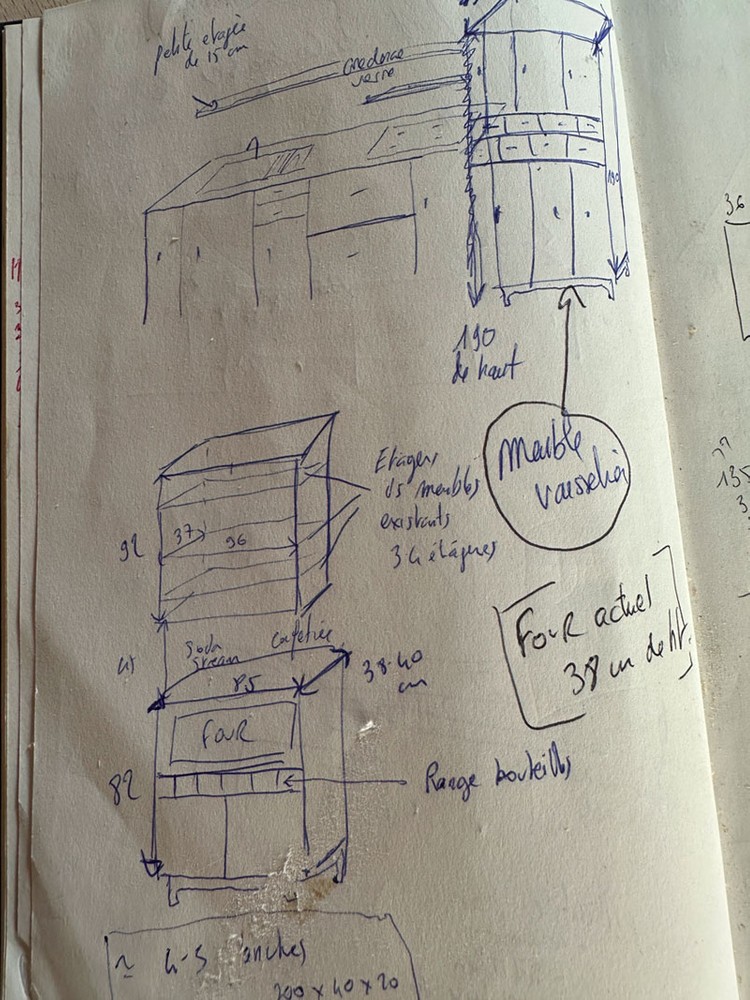 petite etagère
de 15 cm
credence
verre
190
190
de haut
Meuble
vaisselier
Etagers
ds meubles
existants
3 4 étagères
92
37
96
Four actuel
38 cm de ht
Soda
stream
Cafetière
45
85
38-40
cm
FOUR
82
Range bouteilles
≈ 4-5 planches
200 x 40 x 20
36
135